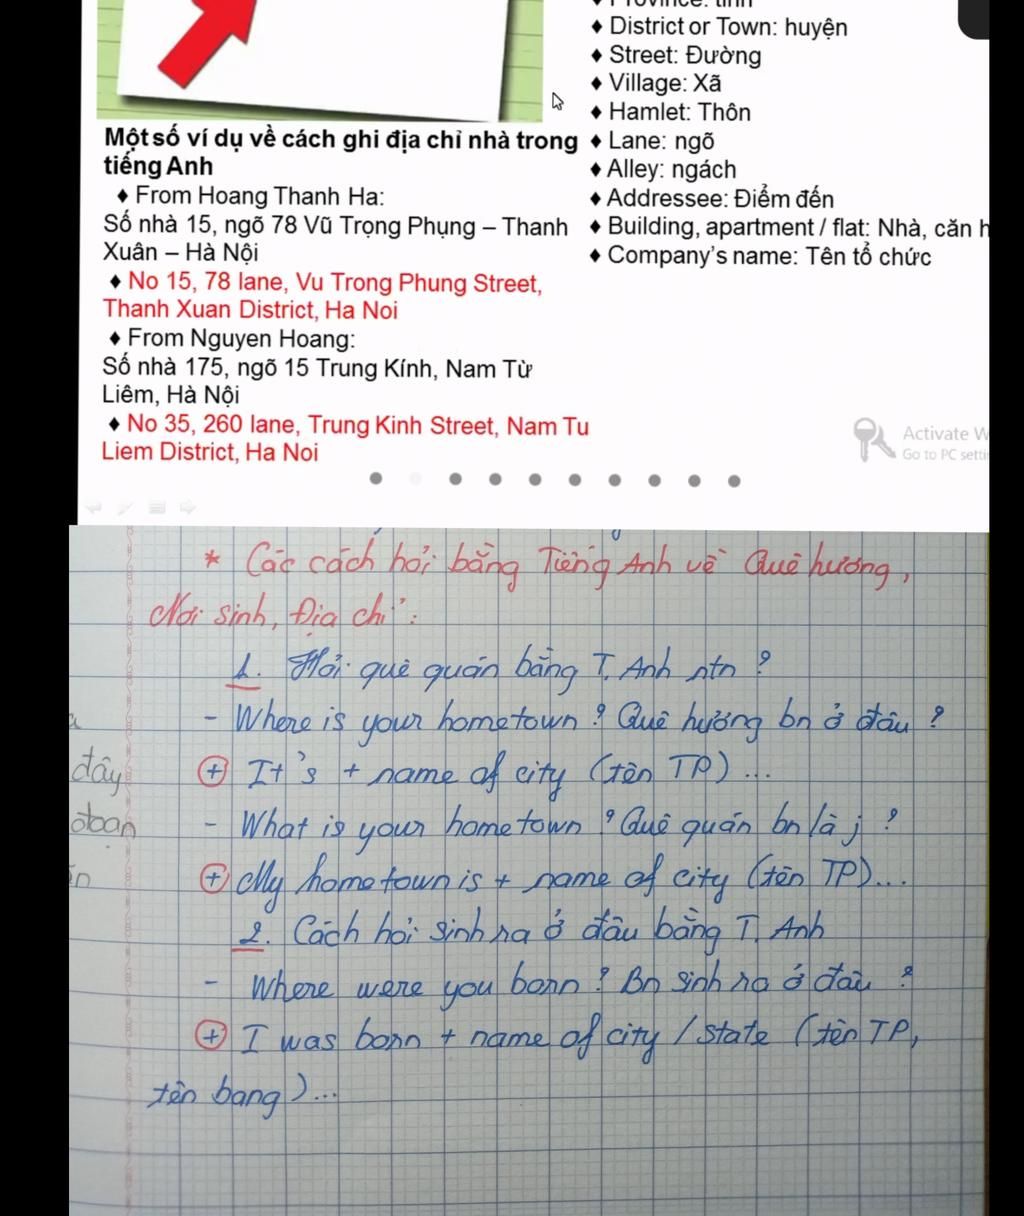 Province: tỉnh
♦ District or Town: huyện
♦ Street: Đường
♦ Village: Xã
♦ Hamlet: Thôn
♦ Lane: ngõ
♦ Alley: ngách
♦ Addressee: Điểm đến
♦ Building, apartment / flat: Nhà, căn h
♦ Company's name: Tên tổ chức
Một số ví dụ về cách ghi địa chỉ nhà trong
tiếng Anh
♦ From Hoang Thanh Ha:
Số nhà 15, ngõ 78 Vũ Trọng Phụng – Thanh
Xuân – Hà Nội
♦ No 15, 78 lane, Vu Trong Phung Street,
Thanh Xuan District, Ha Noi
♦ From Nguyen Hoang:
Số nhà 175, ngõ 15 Trung Kính, Nam Từ
Liêm, Hà Nội
♦ No 35, 260 lane, Trung Kinh Street, Nam Tu
Liem District, Ha Noi
Activate W
Go to PC setti
* Các cách hỏi bằng Tiếng Anh về Quê hương,
Nơi sinh, Địa chỉ:
1. Hỏi quê quán bằng T. Anh ntn ?
- Where is your hometown ? Quê hương bn ở đâu ?
+ It's + name of city (tên TP) ...
- What is your hometown ? Quê quán bn là j ?
+ My hometown is + name of city (tên TP)...
2. Cách hỏi sinh ra ở đâu bằng T. Anh
- Where were you born ? Bn sinh ra ở đâu ?
+ I was born + name of city / state (tên TP,
tên bang)...
đây
đoạn